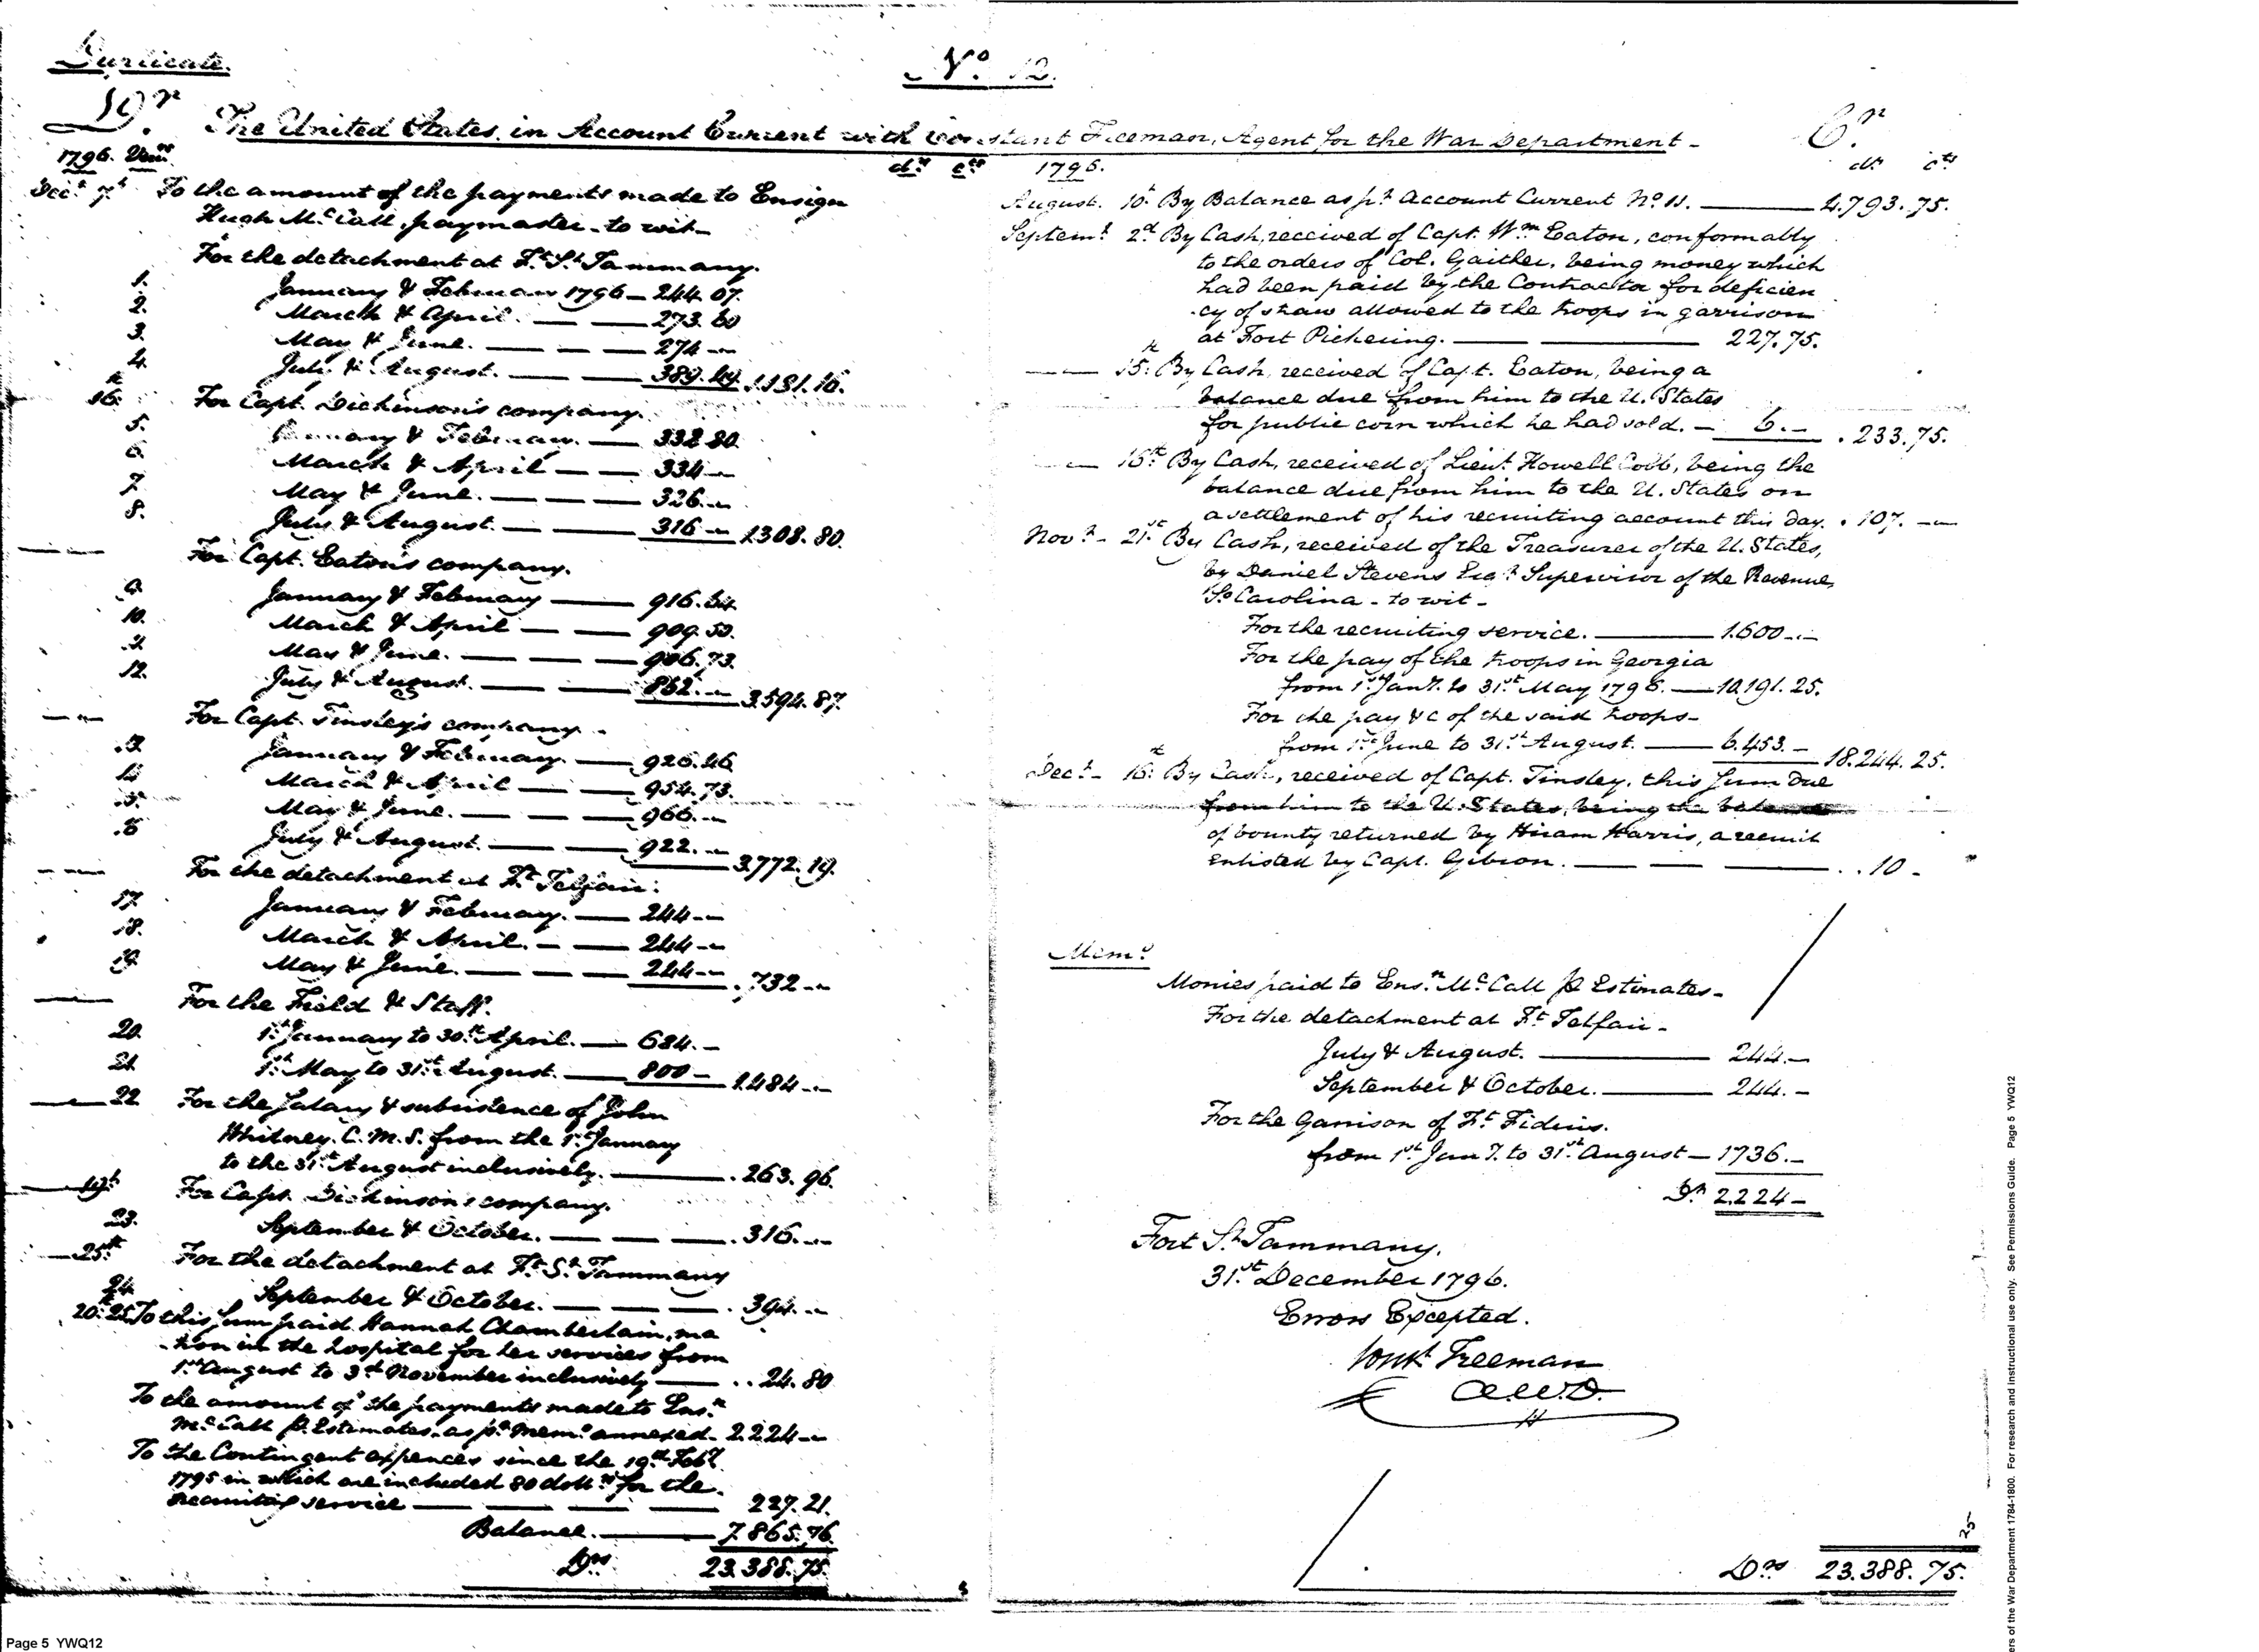 Duplicate.
No. 12.
Dr.
The United States in Account Current with Constant Freeman, Agent for the War Department -
Cr.
1796.
drs cts
Decr. 7th To the amount of the payments made to Ensign
Hugh McCall, paymaster - to wit -
For the detachment at Ft. St. Tammany.
1. January & February 1796 — 244.07.
2. March & April. — — 273.60
3. May & June. — — — 274 —
4. July & August. — — 389.49. 1.181.16.
16th For Capt. Dickinson's company.
5. January & February. — 332.80.
6. March & April — — 334 —
7. May & June. — — — 326. —
8. July & August. — — 316 — 1308.80.
— For Capt. Eaton's company.
9. January & February — 916.64
10. March & April — — 909.50.
11. May & June. — — — 906.73.
12. July & August. — — 862. — 3.594.87.
— For Capt. Tinsley's company.
13. January & February. — 926.46
14. March & April — — 954.73.
15. May & June. — — — 966. —
16. July & August. — — 922. — 3.772.19.
— For the detachment at Ft. Telfair.
17. January & February. — 244 —
18. March & April. — — 244 —
19. May & June. — — — 244 — . 732 —
— For the Field & Staff.
20. 1st January to 30th April. — 684. —
21. 1st May to 31st August. — 800 — 1.484 —
— 22 For the Salary & subsistence of John
Whitney. C. M. S. from the 1st January
to the 31st August inclusively. — . 263.96.
— 19th For Capt. Dickinson's company.
23. September & October. — — — . 316. —
— 25th For the detachment at Ft. St. Tammany
24. September & October. — — — . 394. —
20th 25. To this sum paid Hannah Chamberlain, ma
-tron in the hospital for her services from
1st August to 3d November inclusively — . . 24.80
To the amount of the payments made to Ensn.
McCall pr. Estimates. as pr. Memo. annexed - 2.224 —
To the Contingent expences since the 19th Feby.
1795 in which are included 80 dollrs. for the
recruiting service — — — — 227.21.
Balance. — 7.865.76.
Drs. 23.388.75.
1796.
drs cts
August. 10th By Balance as pr. Account Current No. 11. — 4.793.75.
Septemr. 2d By Cash, received of Capt. Wm. Eaton, conformably
to the orders of Col. Gaither, being money which
had been paid by the Contractor for deficien
-cy of straw allowed to the troops in garrison
at Fort Pickering. — — 227.75.
— 15th By Cash, received of Capt. Eaton, being a
balance due from him to the U. States
for public corn which he had sold. — 6. — . 233.75.
— 15th By Cash, received of Lieut. Howell Cobb, being the
balance due from him to the U. States on
a settlement of his recruiting account this day. . 107. —
Novr. - 21st By Cash, received of the Treasurer of the U. States,
by Daniel Stevens Esqr. Supervisor of the Revenue,
So. Carolina - to wit -
For the recruiting service. — 1.600. —
For the pay of the troops in Georgia
from 1st Jany. to 31st May 1796. — 10.191.25.
For the pay &c of the said troops -
from 1st June to 31st August. — 6.453. — 18.244.25.
Decr. - 16th By Cash, received of Capt. Tinsley, this sum due
from him to the U. States, being the balance
of bounty returned by Hiram Harris, a recruit
enlisted by Capt. Gibson. — — — . . 10 -
Memo.
Monies paid to Ensn. McCall pr Estimates -
For the detachment at Ft. Telfair -
July & August. — 244. —
September & October. — 244. —
For the Garrison of Ft. Fidius.
from 1st Jany. to 31st August — 1736. —
Drs 2.224 —
Fort St. Tammany.
31st December 1796.
Errors Excepted.
Constt Freeman
A.W.D.
25
Drs 23.388.75.
Page 5 YWQ12
ers of the War Department 1784-1800. For research and instructional use only. See Permissions Guide. Page 5 YWQ12